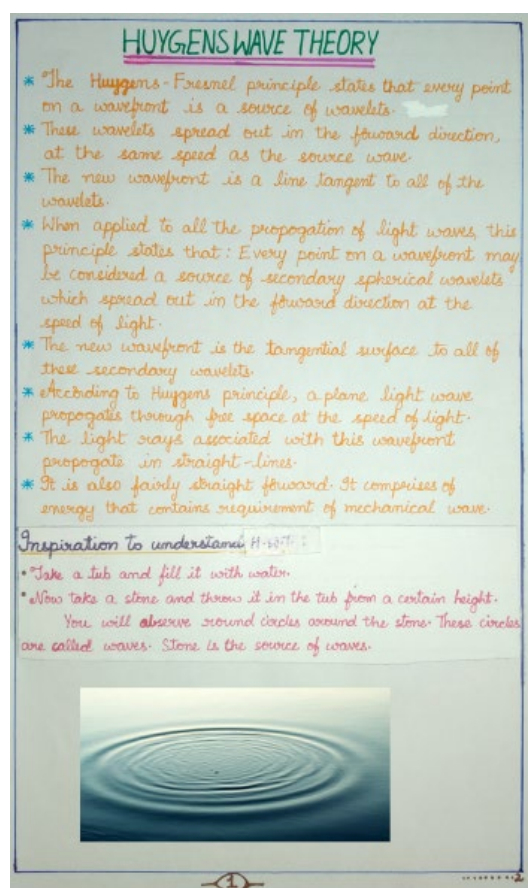 HUYGENS WAVE THEORY
* The Huygens-Fresnel principle states that every point
on a wavefront is a source of wavelets.
* These wavelets spread out in the forward direction,
at the same speed as the source wave.
* The new wavefront is a line tangent to all of the
wavelets.
* When applied to all the propogation of light waves, this
principle states that: Every point on a wavefront may
be considered a source of secondary spherical wavelets
which spread out in the forward direction at the
speed of light.
* The new wavefront is the tangential surface to all of
these secondary wavelets.
* According to Huygens principle, a plane light wave
propogates through free space at the speed of light.
* The light rays associated with this wavefront
propogate in straight-lines.
* It is also fairly straight forward. It comprises of
energy that contains requirement of mechanical wave.
Inspiration to understand
• Take a tub and fill it with water.
• Now take a stone and throw it in the tub from a certain height.
You will observe round circles around the stone. These circles
are called waves. Stone is the source of waves.
1
2